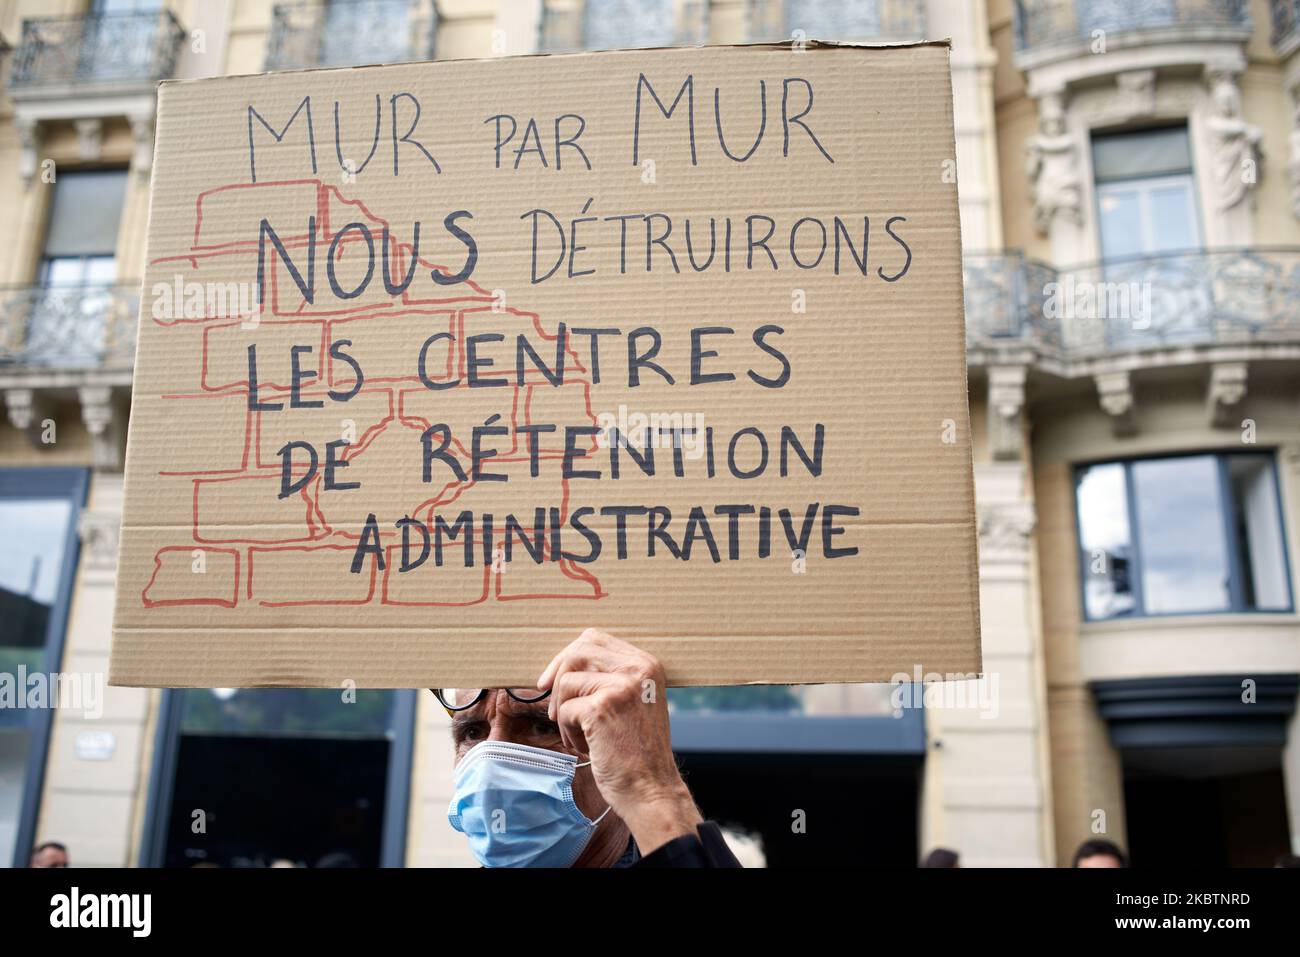 MUR PAR MUR
NOUS DÉTRUIRONS
LES CENTRES
DE RÉTENTION
ADMINISTRATIVE
alamy
Image ID: 2KBTNRD
www.alamy.com